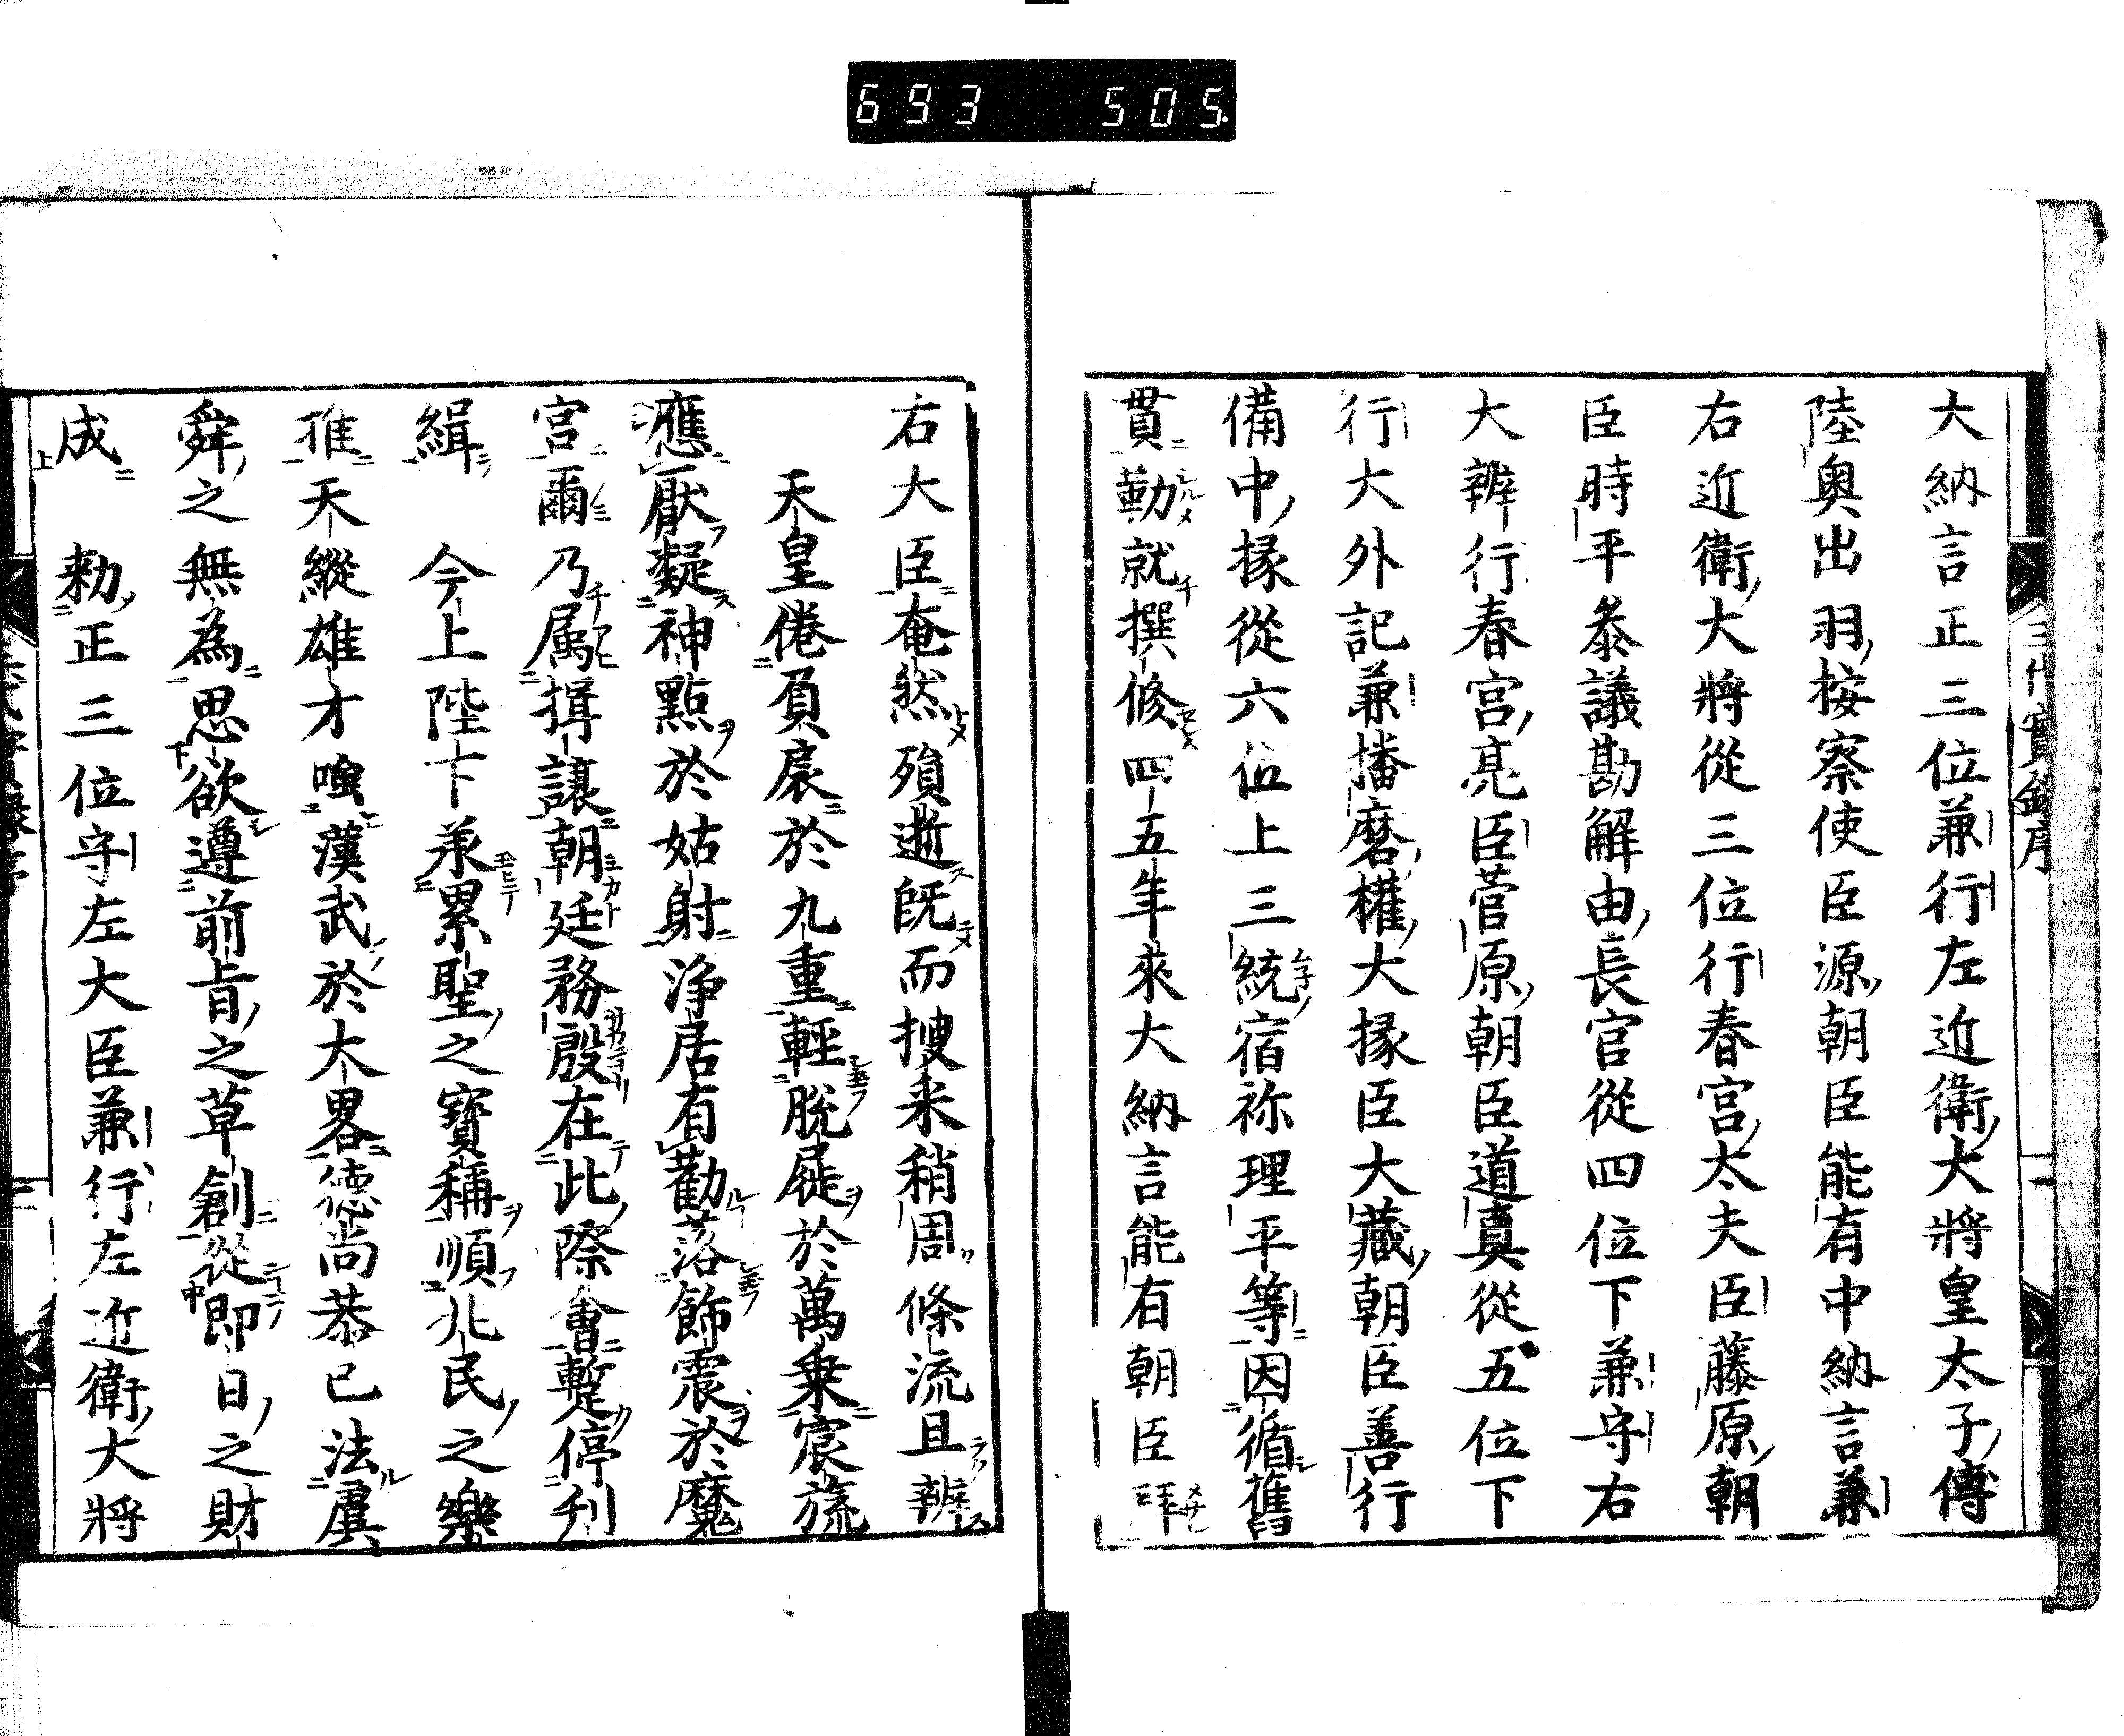 693 505
三代實錄序
大納言正三位兼行左近衛大將皇太子傅
陸奥出羽按察使臣源朝臣能有中納言兼
右近衛大將從三位行春宮太夫臣藤原朝
臣時平叅議勘解由長官從四位下兼守右
大辨行春宮亮臣菅原朝臣道真從五位下
行大外記兼播磨權大掾臣大藏朝臣善行
備中掾從六位上三統宿祢理平等因循舊
貫勤就撰修四五年来大納言能有朝臣拜
右大臣奄然殞逝既而捜采稍周條流且辨
天皇倦負扆於九重輕脫屣於萬乗宸旒
應厭凝神㸃於姑射浄居有勸落飾震於魔
宮爾乃属揖讓朝廷務殷在此際會暫停刋
緝今上陛下承累聖之寶稱順兆民之樂
推天縱雄才嗤漢武於大畧德尚恭已法虞
舜之無為思欲遵前旨之草創從即日之財
成勅正三位守左大臣兼行左近衛大將